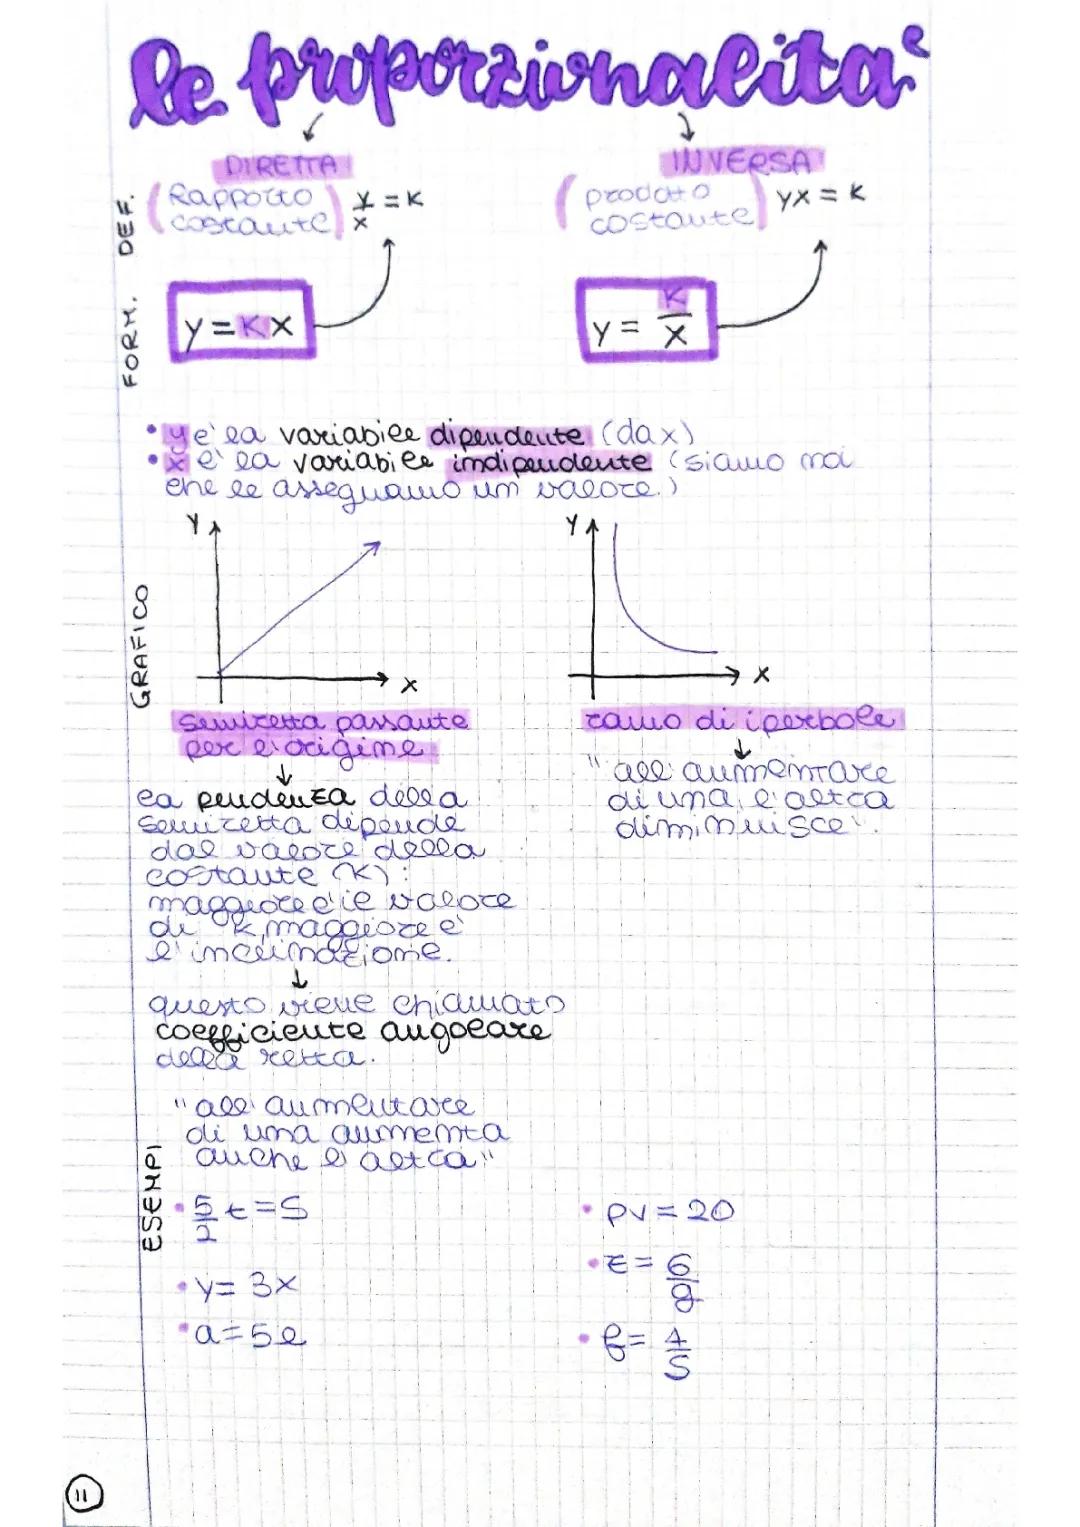 le proporzionalità
DIRETTA
INVERSA
DEF.
(Rapporto costante) y/x = K
(prodotto costante) yx = K
FORM.
y = Kx
y = K/x
• y è la variabile dipendente (da x)
• x è la variabile indipendente (siamo noi
che le assegnamo un valore.)
GRAFICO
Y
X
Y
X
semiretta passante
per l'origine
ramo di iperbole
"all'aumentare
di una, l'altra
diminuisce".
la pendenza della
semiretta dipende
dal valore della
costante (K):
maggiore è il valore
di K, maggiore è
l'inclinazione.
questo viene chiamato
coefficiente angolare
della retta.
"all'aumentare
di una aumenta
anche l'altra"
ESEMPI
• 5/2 t = S
• y = 3x
• a = 5l
• pv = 20
• t = 6/g
• f = 4/S
11